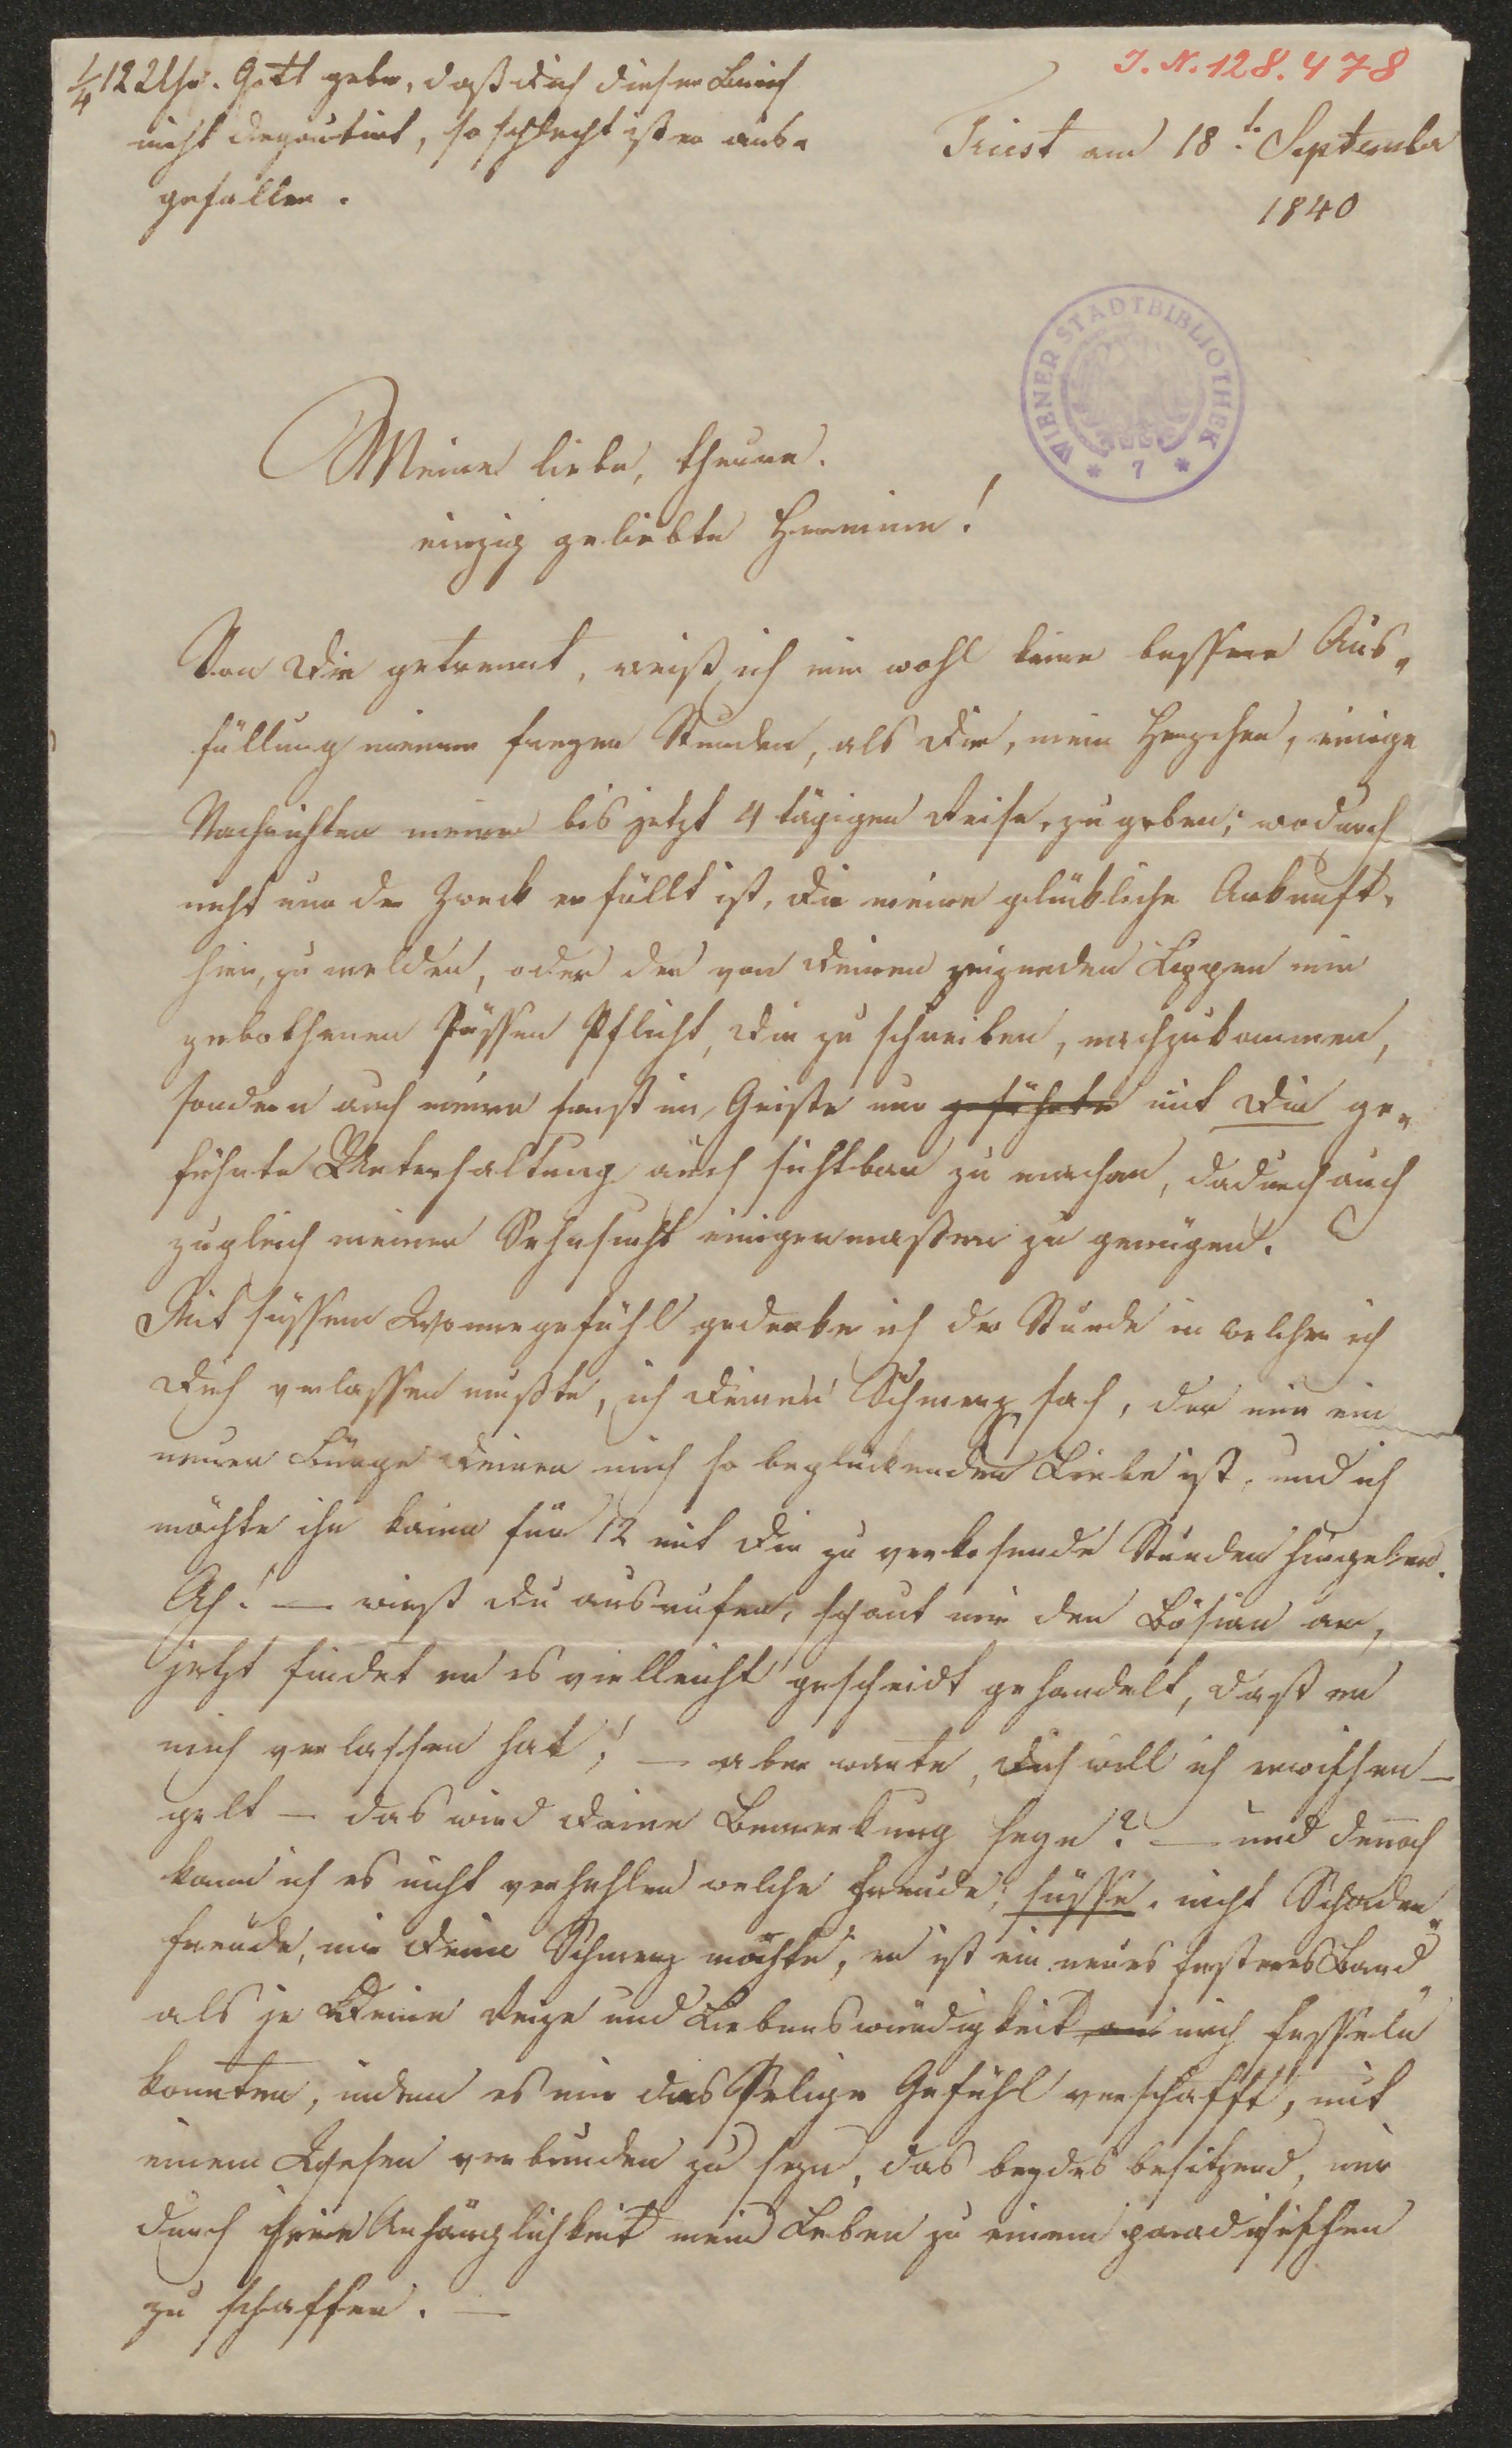 I. N. 128.478
1/4 12 Uhr. Gott gebe, daß dich dieser Brief
nicht degoutirt, so schlecht ist er aus-
gefallen.
Triest am 18t. September
1840
WIENER STADTBIBLIOTHEK
* 7 *
Meine liebe, theure.
einzig geliebte Hermine!
Von Dir getrennt, weiß ich mir wohl keine bessere Aus-
füllung meiner freyen Stunden, als Dir, mein Herzchen, einige
Nachrichten meiner bis jetzt 4 tägigen Reise, zu geben; wodurch
nicht nur der Zweck erfüllt ist, Dir meine glückliche Ankunft,
hier, zu melden, oder der von Deinen Lippen mir
gebothenen süssen Pflicht, Dir zu schreiben, nachzukommen,
sondern auch meine sonst im Geiste nur geführte mit Dir ge-
führte Unterhaltung auch sichtbar zu machen, dadurch auch
zugleich meiner Sehnsucht einigermassen zu genügen.
Mit süssem Wonnegefühl gedenke ich der Stunde in welcher ich
Dich verlassen mußte, ich Deinen Schmerz sah, der mir ein
neuer Bürge Deiner mich so beglückenden Liebe ist, und ich
möchte ihn kaum für 12 mit Dir zu verkosende Stunden hingeben.
Ach! — wirst Du ausrufen, schaut mir den Bösian an,
jetzt findet er es vielleicht gescheidt gehandelt, daß er
mich verlassen hat; — aber warte, Dich will ich erwischen —
gelt — das wird Deine Bemerkung seyn? — und dennoch
kann ich es nicht verhehlen welche Freude, süsse, nicht Schaden-
freude, mir Dein Schmerz machte, er ist ein neues festeres Band
als je Deine Reize und Liebenswürdigkeit mich fesseln
konnten, indem es mir das selige Gefühl verschafft, mit
einem Wesen verbunden zu seyn, das beydes besitzend, nur
durch ihre Anhänglichkeit mein Leben zu einem paradisischen
zu schaffen. —